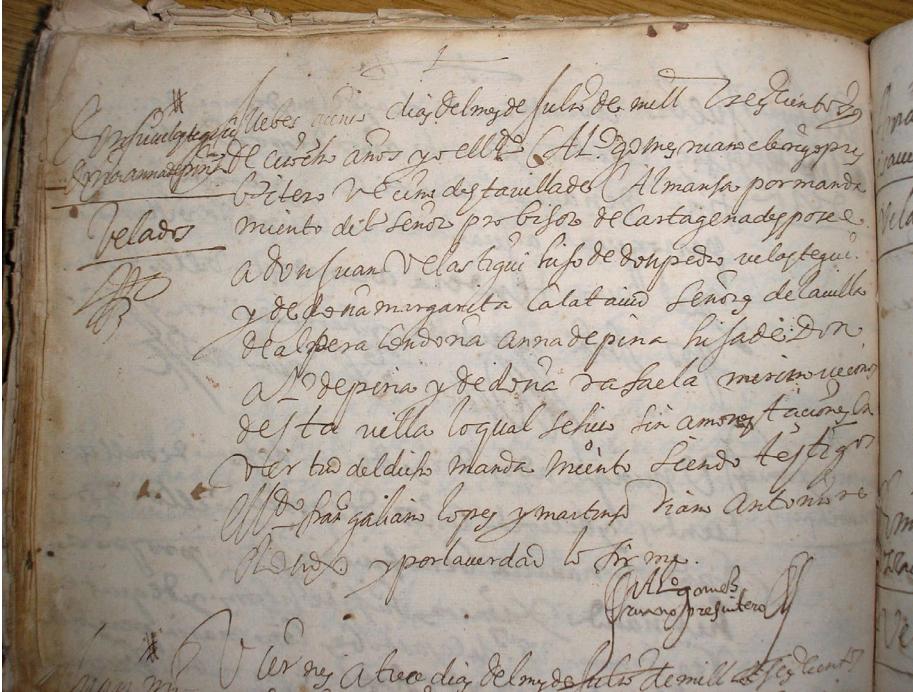 Don Juan Velastegui
Doña anna de pina
Velados
Juebes quinse dias del mes de Julio de mill y seyscientos
de y ocho años yo el lido Alo gomes ruano clerigo pres
bitero vecino desta villa de Almansa por manda
miento del señor probisor de Cartagena despose e
a don Juan Velastigui hijo de don pedro velastegui
y de doña margarita Calataiud señores de la villa
de alpera con doña anna de pina hija de Don
Alo de pina y de doña rafaela merino vecinos
desta villa lo qual se hiço sin amonestaciones en
vertud del dicho mandamiento siendo testigos
el ldo fran galiano lopes y martin Antonio
y por la verdad lo firme.
Alo gomes
ruano presbitero
Viernes a trece dias del mes de Julio de mill y seyscientos